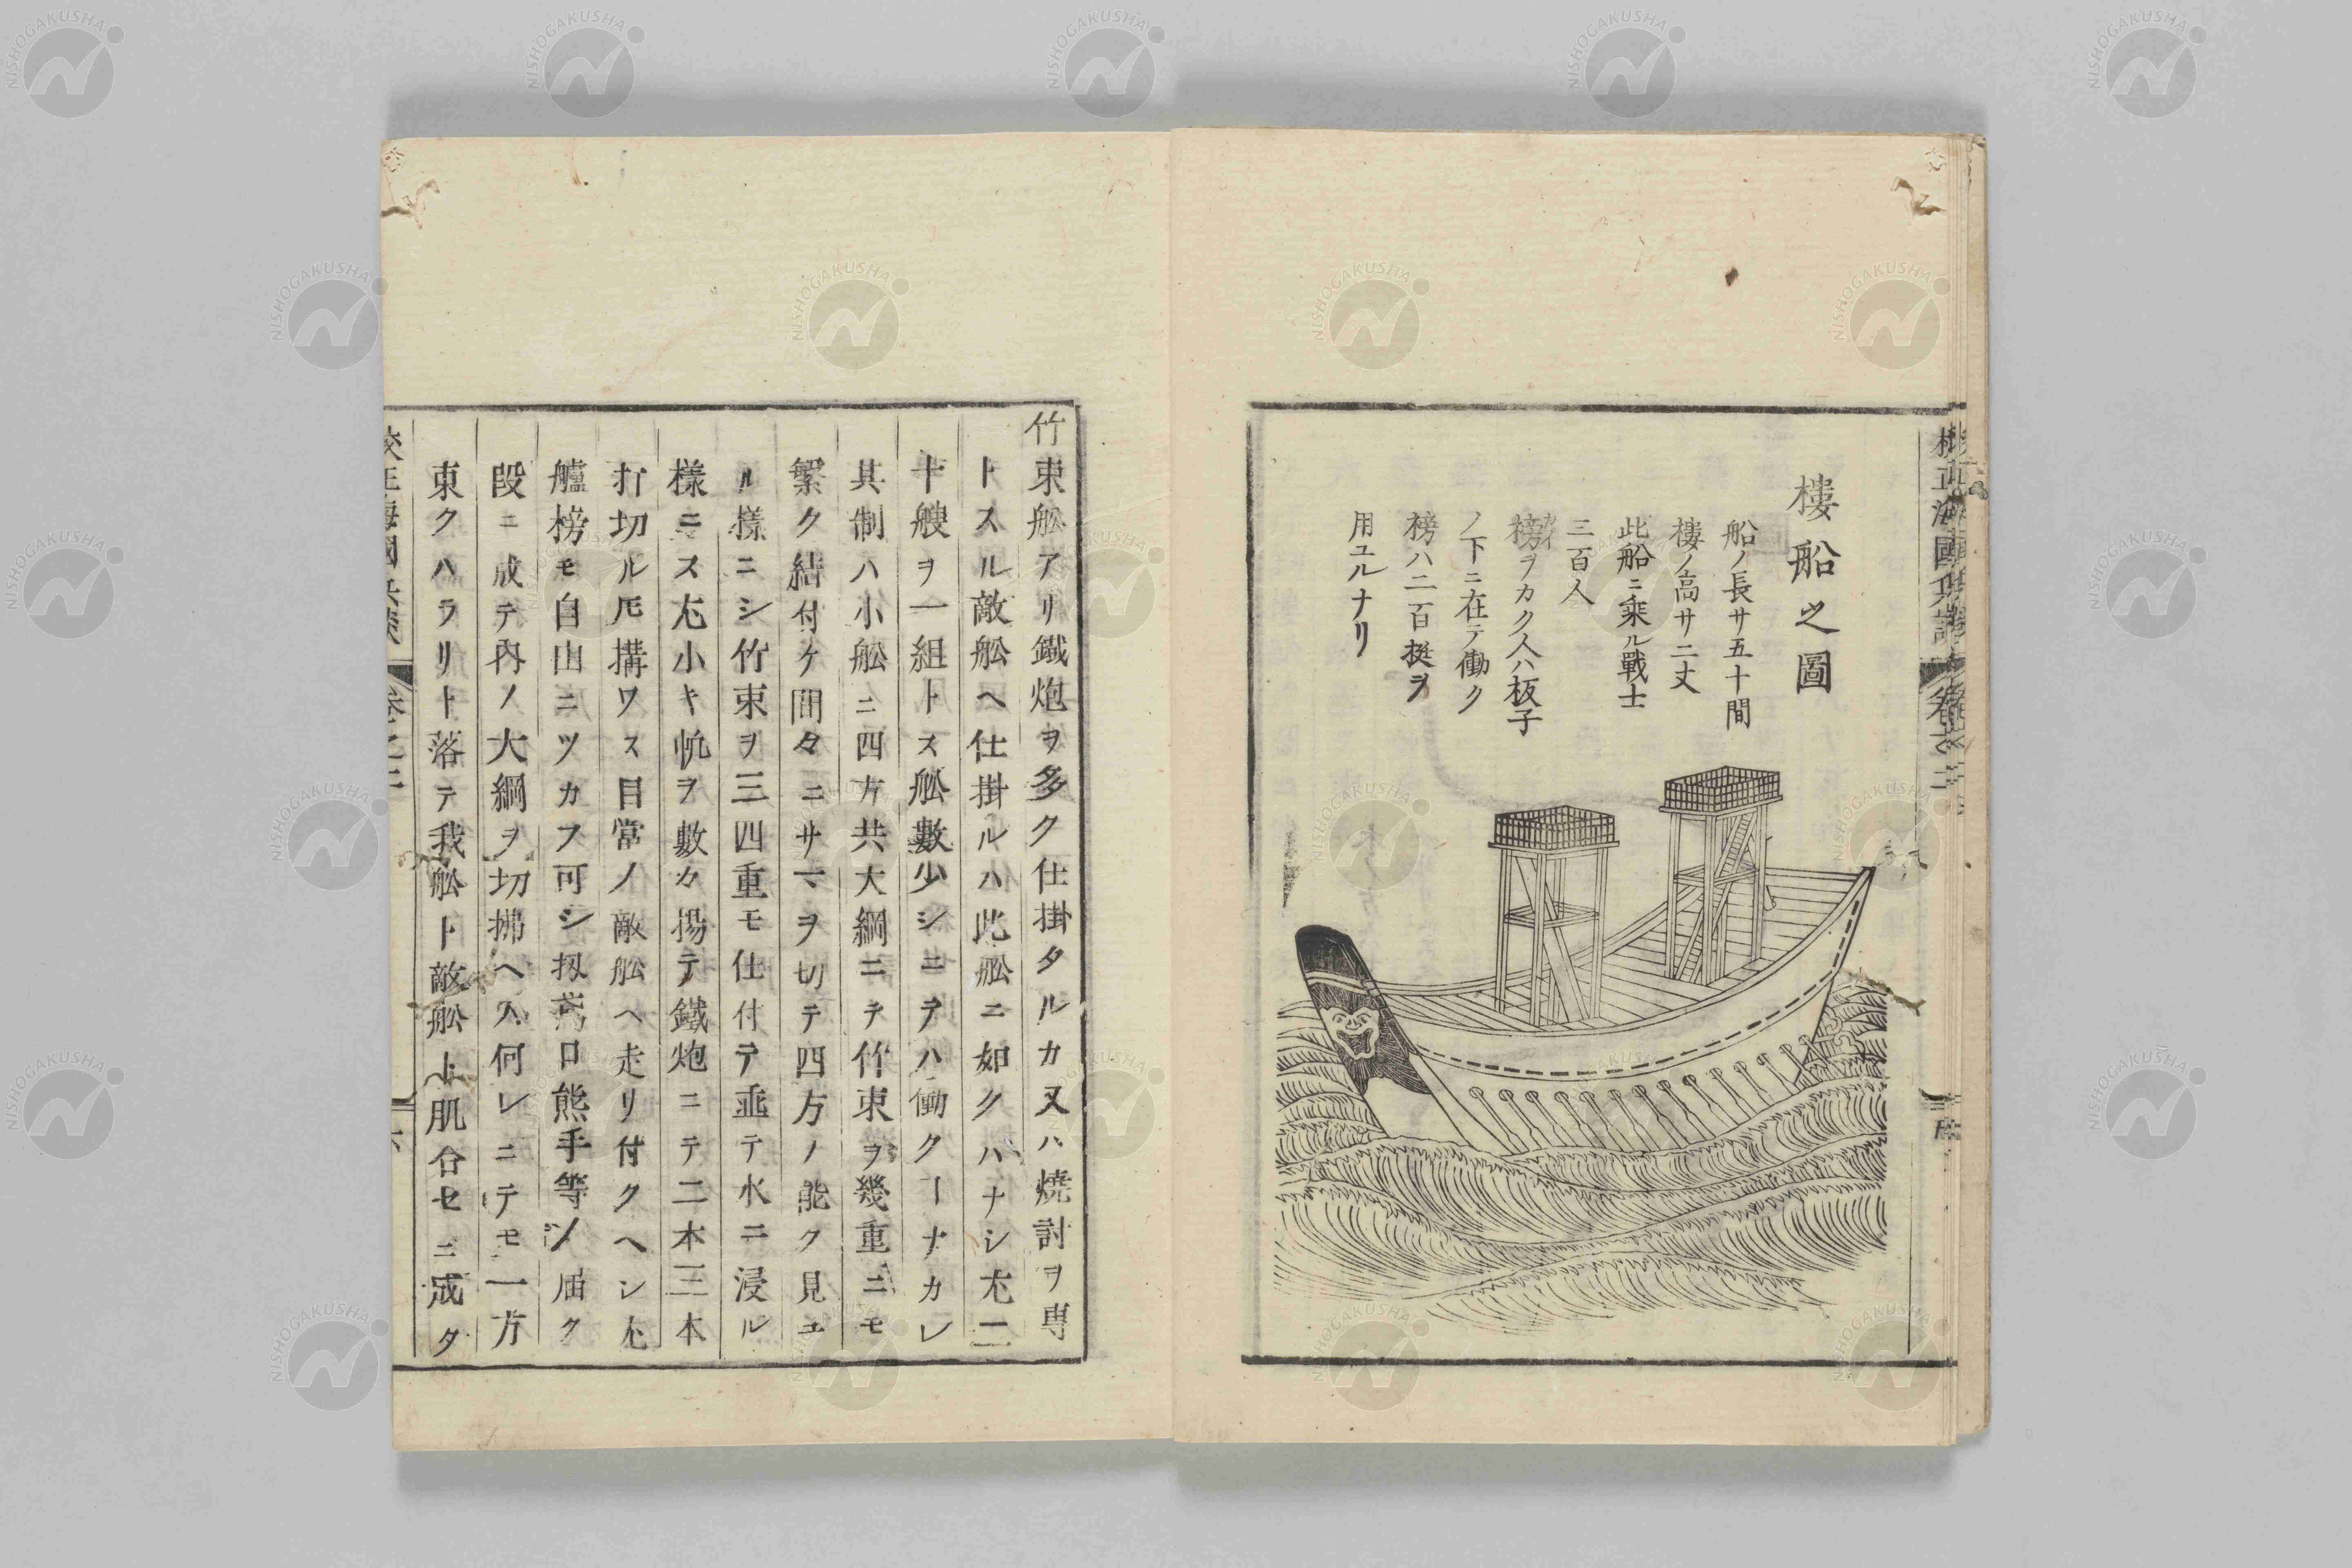 樓船之圖
船ノ長サ五十間
樓ノ高サ二丈
此船ニ乘ル戰士
三百人
榜ヲカク人ハ板子
カイ
ノ下ニ在テ働ク
榜ハ二百挺ヲ
用ユルナリ
竹束舩アリ鐵炮ヲ多ク仕掛タルカ又ハ焼討ヲ専
トスル敵舩ヘ仕掛ルハ此舩ニ如クハナシ尤二
十艘ヲ一組トス舩數少シニテハ働クヿナカレ
其制ハ小舩ニ四方共大綱ニテ竹束ヲ幾重ニモ
繁ク結付ケ間々ニサマヲ切テ四方ノ能ク見ユ
ル様ニシ竹束ヲ三四重モ仕付テ垂テ水ニ浸ル
様ニス尤小キ帆ヲ數カ揚テ鐵炮ニテ二本三本
打切ルモ構ワス目當ノ敵舩ヘ走リ付クヘシ尤
艫榜モ自由ニツカフ可シ扨鳶口熊手等ノ届ク
段ニ成テ内ノ大綱ヲ切拂ヘハ何レニテモ一方
束クハラリト落テ我舩ト敵舩ト肌合セニ成タ
NISHOGAKUSHA